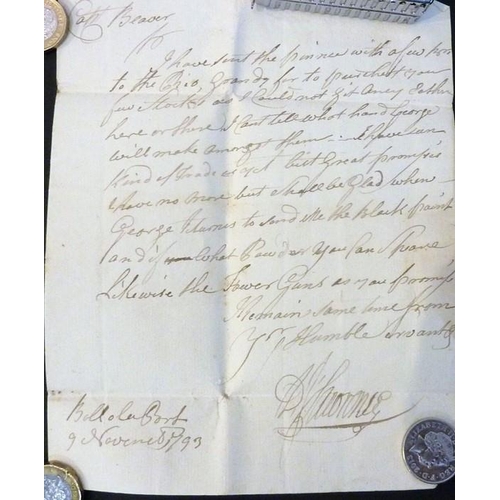 Capt Beaver
I have sent the pinnce with a few
to the Rio Grandy for to purchest you
few Stocks as I Could not Git aney Eather
here or there I Cant tell what hand George
will make amongst them I have seen
kind of trade as yet but Great promise
have no more but Shall be Glad when
George Returns to send me the black paint
and if what Powder you Can Spare
Likewise the Tower Guns as you promis
Remain same time from
Yr Humble Servant
Bollola Port
9 Novemb 1793
ELIZABETH II